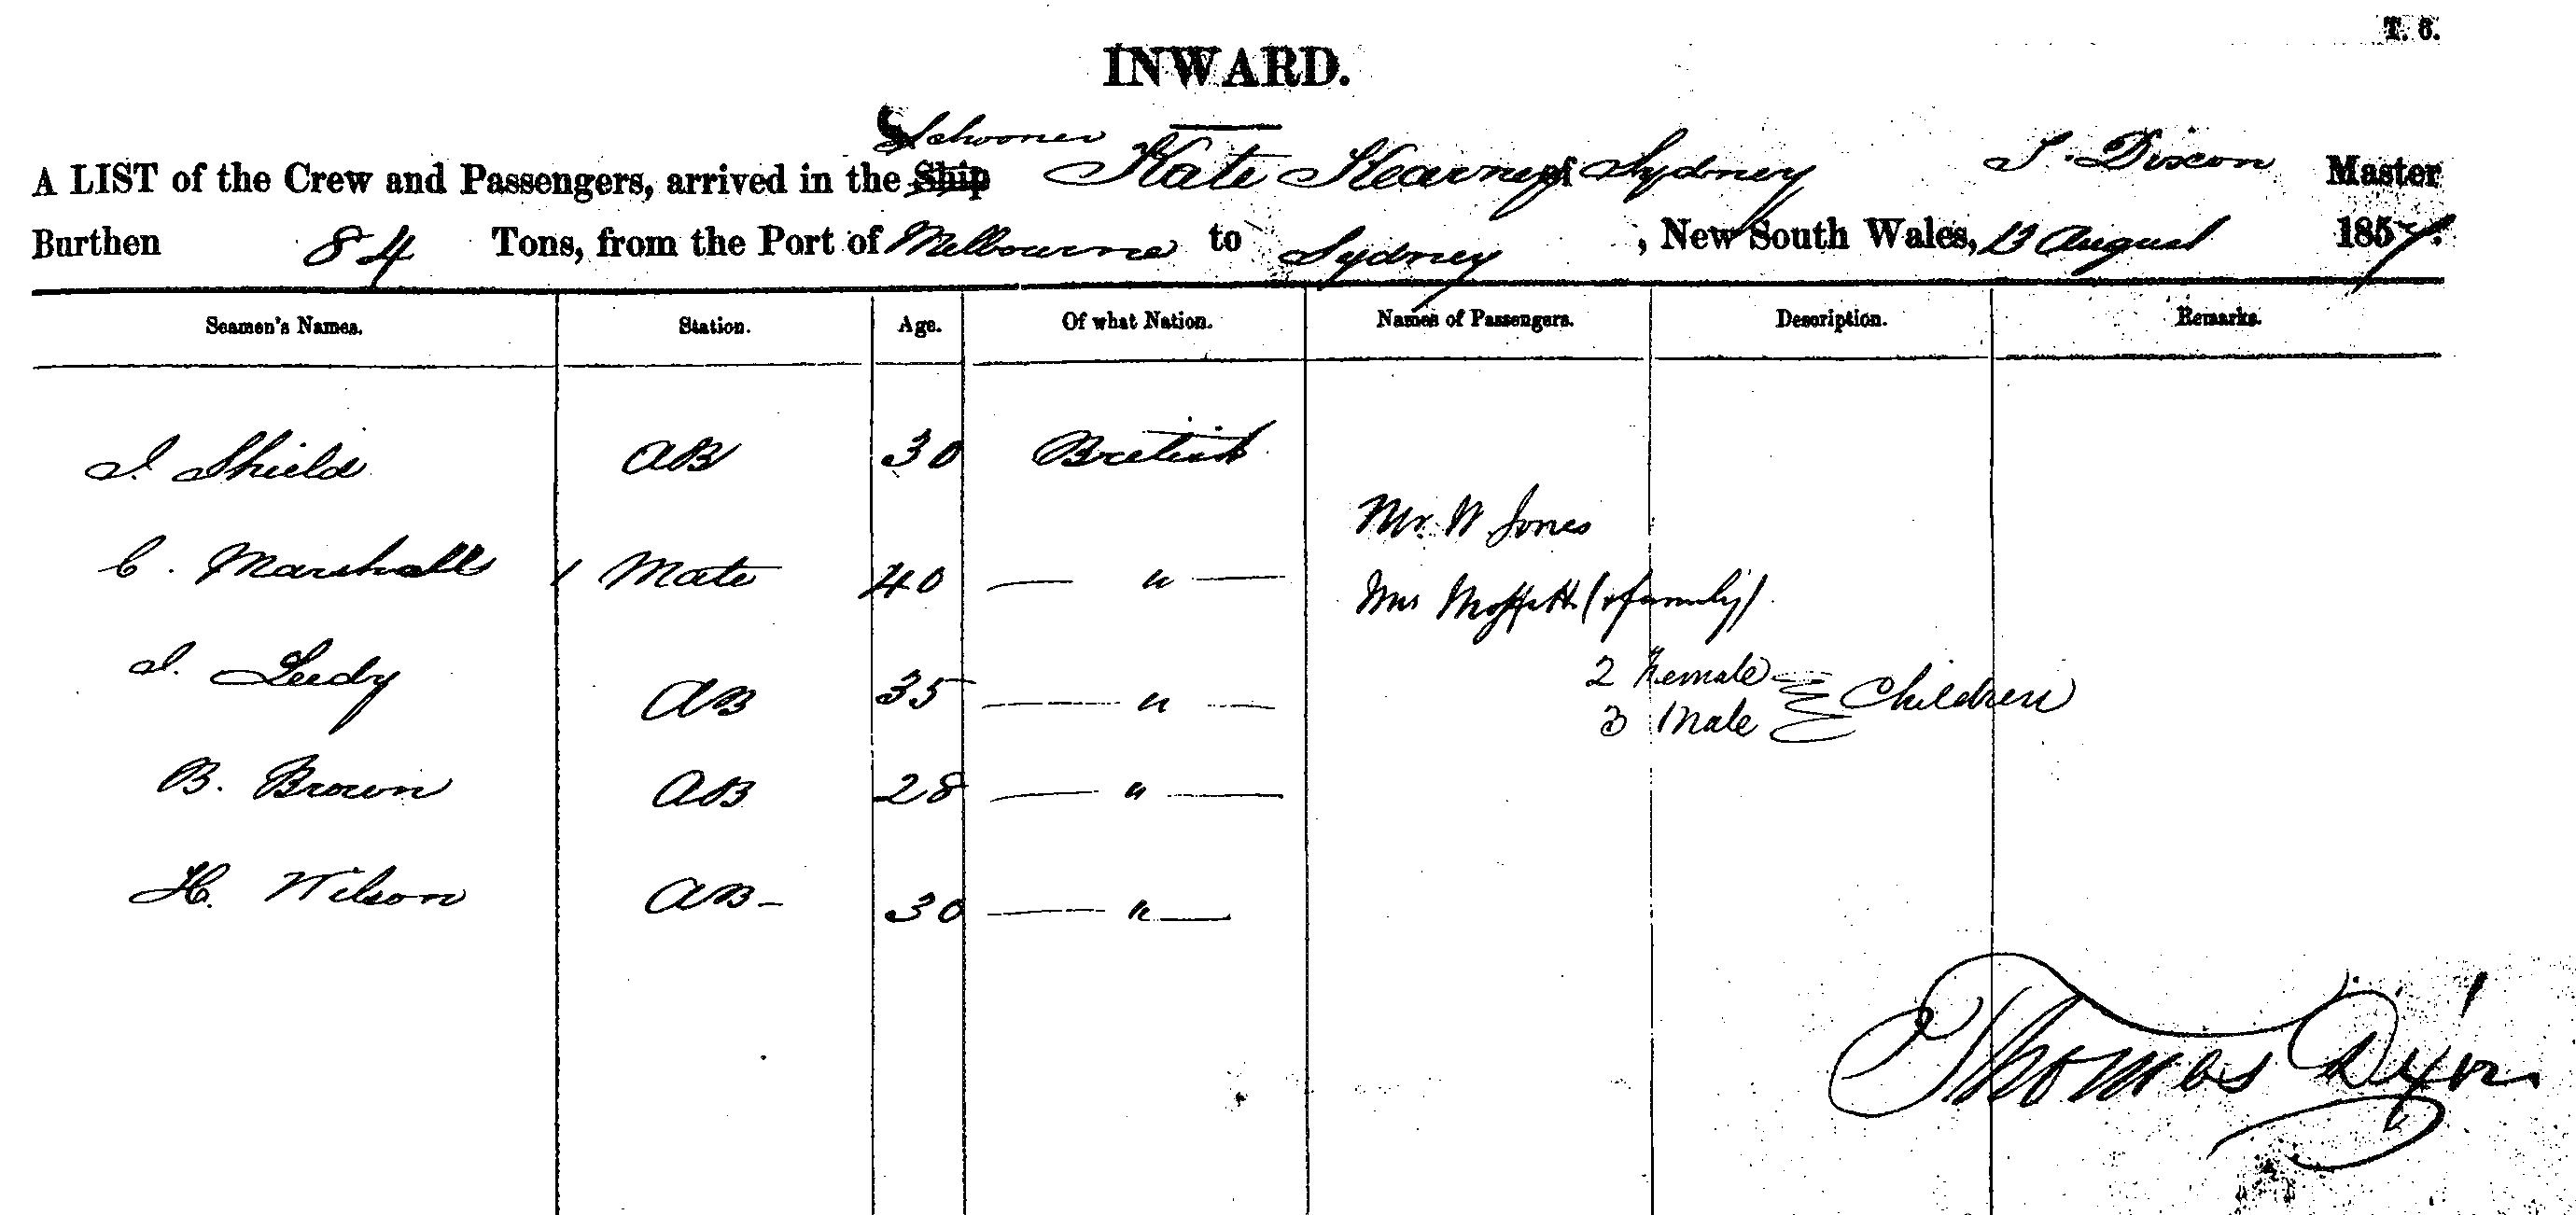 T. 6.
INWARD.
Schooner
A LIST of the Crew and Passengers, arrived in the Ship Kate Kearney of Sydney T. Dixon Master
Burthen 84 Tons, from the Port of Melbourne to Sydney, New South Wales, 13 August 1857.
Seamen's Names. Station. Age. Of what Nation. Names of Passengers. Description. Remarks.
J. Shield AB 30 British
Mr. W Jones
C. Marshall 1 Mate 40 — " —
Mrs Moffett (& family)
J. Leedy AB 35 — " —
2 Female
3 Male Children
B. Brown AB 28 — " —
H. Wilson AB - 30 — " —
Thomas Dixon